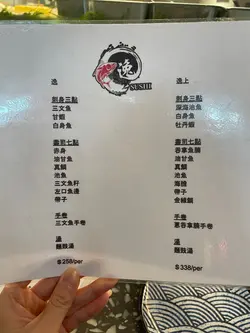 逸
SUSHI
逸
刺身三點
三文魚
甜蝦
白身魚
壽司七點
赤身
油甘魚
真鯛
池魚
三文魚籽
左口魚邊
帶子
手卷
三文魚手卷
湯
麵豉湯
$258/per
逸上
刺身三點
深海池魚
白身魚
牡丹蝦
壽司七點
吞拿魚腩
油甘魚
真鯛
池魚
海膽
帶子
金線鯛
手卷
蔥吞拿腩手卷
湯
麵豉湯
$338/per